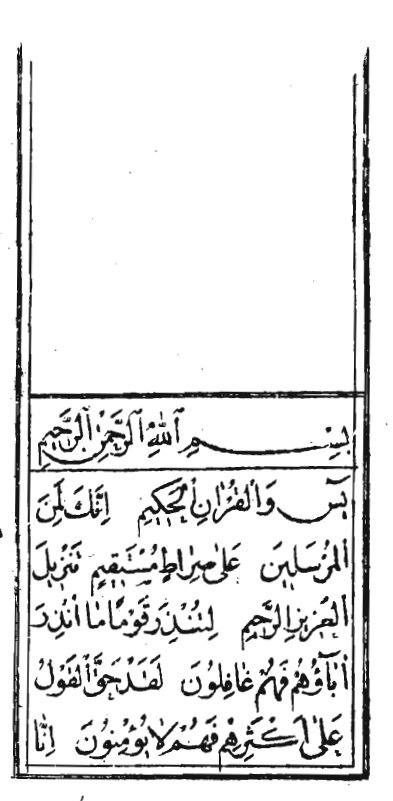 بِسْمِ ٱللّٰهِ ٱلرَّحْمٰنِ ٱلرَّحِيمِ
يٰسٓ وَٱلْقُرْاٰنِ ٱلْحَكِيمِ اِنَّكَ لَمِنَ
ٱلْمُرْسَلِينَ عَلٰى صِرَاطٍ مُسْتَقِيمٍ تَنْزِيلَ
ٱلْعَزِيزِ ٱلرَّحِيمِ لِتُنْذِرَ قَوْمًا مٰا اُنْذِرَ
اٰبٰآؤُهُمْ فَهُمْ غٰافِلُونَ لَقَدْ حَقَّ ٱلْقَوْلُ
عَلٰى اَكْثَرِهِمْ فَهُمْ لٰا يُؤْمِنُونَ اِنّٰا